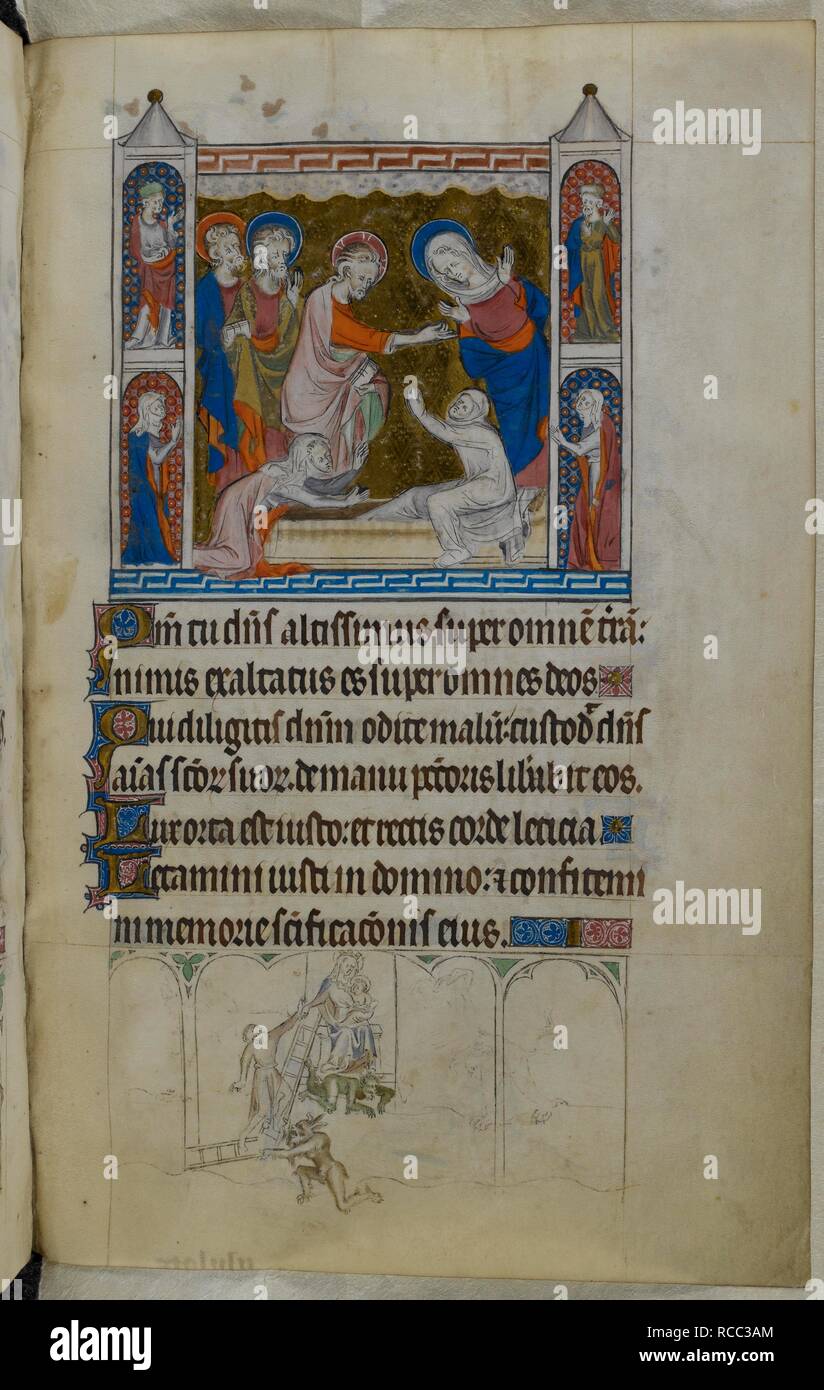 Qm̄ tu dn̄s altissimus super omnē t̄rā:
nimis exaltatus es super omnes deos
Qui diligitis dnm̄ odite malū: custod̄ dn̄s
aīas sc̄oꝝ suoꝝ. de manu pc̄c̄oris lib̄abit eos.
Lux orta est iusto: et rectis corde leticia
Letamini iusti in domino: ⁊ confitemi
ni memorie sc̄ificac̄onis eius.
alamy
Image ID: RCC3AM
www.alamy.com